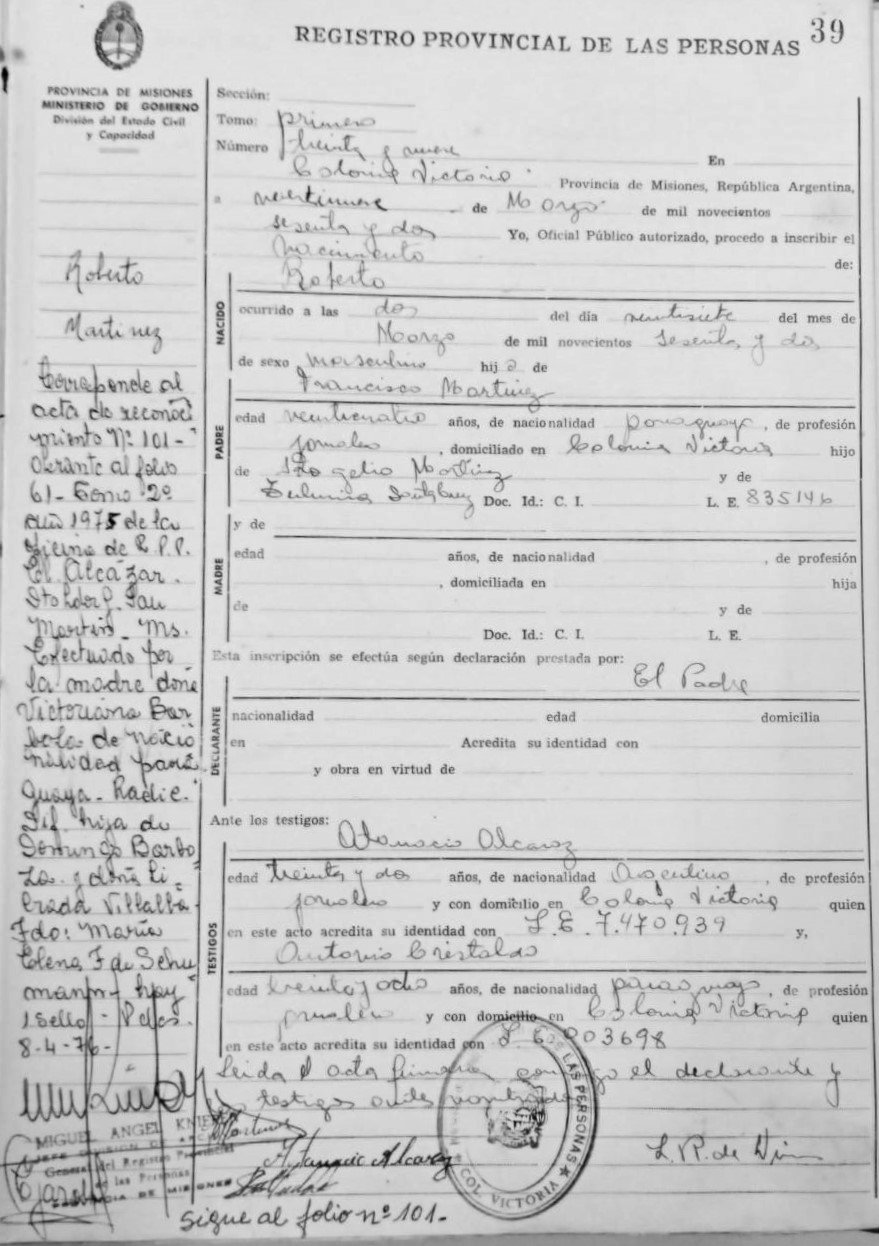 REGISTRO PROVINCIAL DE LAS PERSONAS 39
PROVINCIA DE MISIONES
MINISTERIO DE GOBIERNO
División del Estado Civil
y Capacidad
Roberto
Martinez
Corresponde al
acta de reconoci
miento Nº 101-
Obrante al folio
61- Tomo 2º
año 1975 de la
Oficina de R.P.P.
El Alcázar.
Dto Ldor G. San
Martin - Ms.
Efectuado por
la madre doña
Victoriana Bar
bola de nacio
nalidad para
guaya - Radic.
hija de
Domingo Barbo
za y doña Li
brada Villalba
Fdo: María
Elena F de Schu
mann - hay
1 sello - Pdas.
8-4-76-
Sección:
Tomo: primero
Número treinta y nueve
Colonia Victoria En
Provincia de Misiones, República Argentina,
a veintinueve de Marzo de mil novecientos
sesenta y dos Yo, Oficial Público autorizado, procedo a inscribir el
nacimiento de:
Roberto
NACIDO
ocurrido a las dos del día veintisiete del mes de
Marzo de mil novecientos sesenta y dos
de sexo masculino hij o de
Francisco Martinez
PADRE
edad veinticuatro años, de nacionalidad paraguayo, de profesión
jornalero, domiciliado en Colonia Victoria hijo
de Rogelio Martinez y de
Doc. Id.: C. I. L. E. 835146
MADRE
y de
edad años, de nacionalidad , de profesión
, domiciliada en hija
de y de
Doc. Id.: C. I. L. E.
Esta inscripción se efectúa según declaración prestada por:
El Padre
DECLARANTE
nacionalidad edad domicilia
en Acredita su identidad con
y obra en virtud de
Ante los testigos:
Atanacio Alcaraz
TESTIGOS
edad treinta y dos años, de nacionalidad Argentino, de profesión
jornalero y con domicilio en Colonia Victoria quien
en este acto acredita su identidad con L.E. 7.470.939 y,
Antonio Cristaldo
edad treinta y ocho años, de nacionalidad paraguayo, de profesión
jornalero y con domicilio en Colonia Victoria quien
en este acto acredita su identidad con 003698
Leida el acta firman conmigo el declarante y
los testigos antes nombrados
DE LAS PERSONAS
COL. VICTORIA
MIGUEL ANGEL
JEFE DIVISION DE
General del Registro Provincial
de las Personas
PROVINCIA DE MISIONES
Martinez
Atanacio Alcaraz
Sigue al folio nº 101-